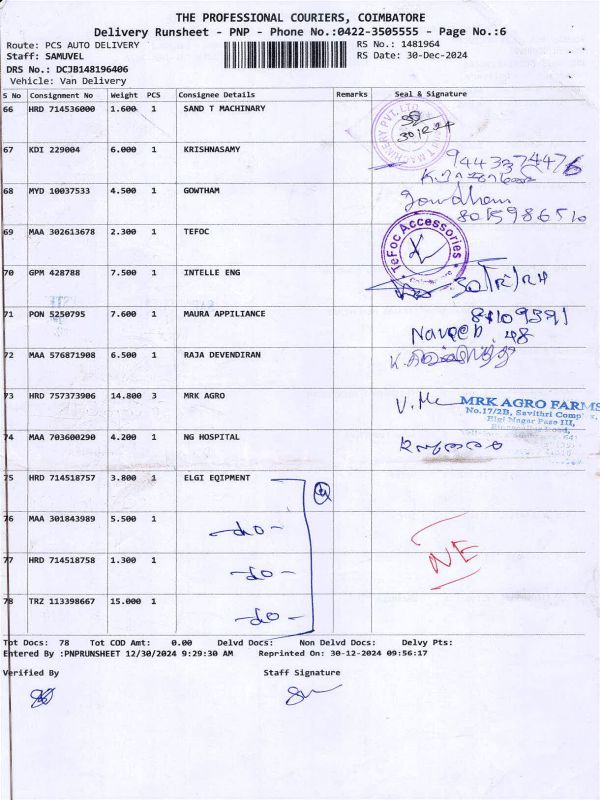 THE PROFESSIONAL COURIERS, COIMBATORE
Delivery Runsheet - PNP - Phone No.:0422-3505555 - Page No.:6
Route: PCS AUTO DELIVERY RS No.: 1481964
Staff: SAMUVEL RS Date: 30-Dec-2024
DRS No.: DCJB148196406
Vehicle: Van Delivery
S No Consignment No Weight PCS Consignee Details Remarks Seal & Signature
66 HRD 714536000 1.600 1 SAND T MACHINARY
67 KDI 229004 6.000 1 KRISHNASAMY
68 MYD 10037533 4.500 1 GOWTHAM Gowdham
8015986510
69 MAA 302613678 2.300 1 TEFOC TeFoc Accessories
70 GPM 428788 7.500 1 INTELLE ENG
71 PON 5250795 7.600 1 MAURA APPILIANCE
72 MAA 576871908 6.500 1 RAJA DEVENDIRAN
73 HRD 757373906 14.800 3 MRK AGRO MRK AGRO FARMS
No.17/2B, Savithri
Elgi Nagar
74 MAA 703600290 4.200 1 NG HOSPITAL
75 HRD 714518757 3.800 1 ELGI EQIPMENT
76 MAA 301843989 5.500 1 -do-
NE
77 HRD 714518758 1.300 1 -do-
78 TRZ 113398667 15.000 1 -do-
Tot Docs: 78 Tot COD Amt: 0.00 Delvd Docs: Non Delvd Docs: Delvy Pts:
Entered By :PNPRUNSHEET 12/30/2024 9:29:30 AM Reprinted On: 30-12-2024 09:56:17
Verified By Staff Signature